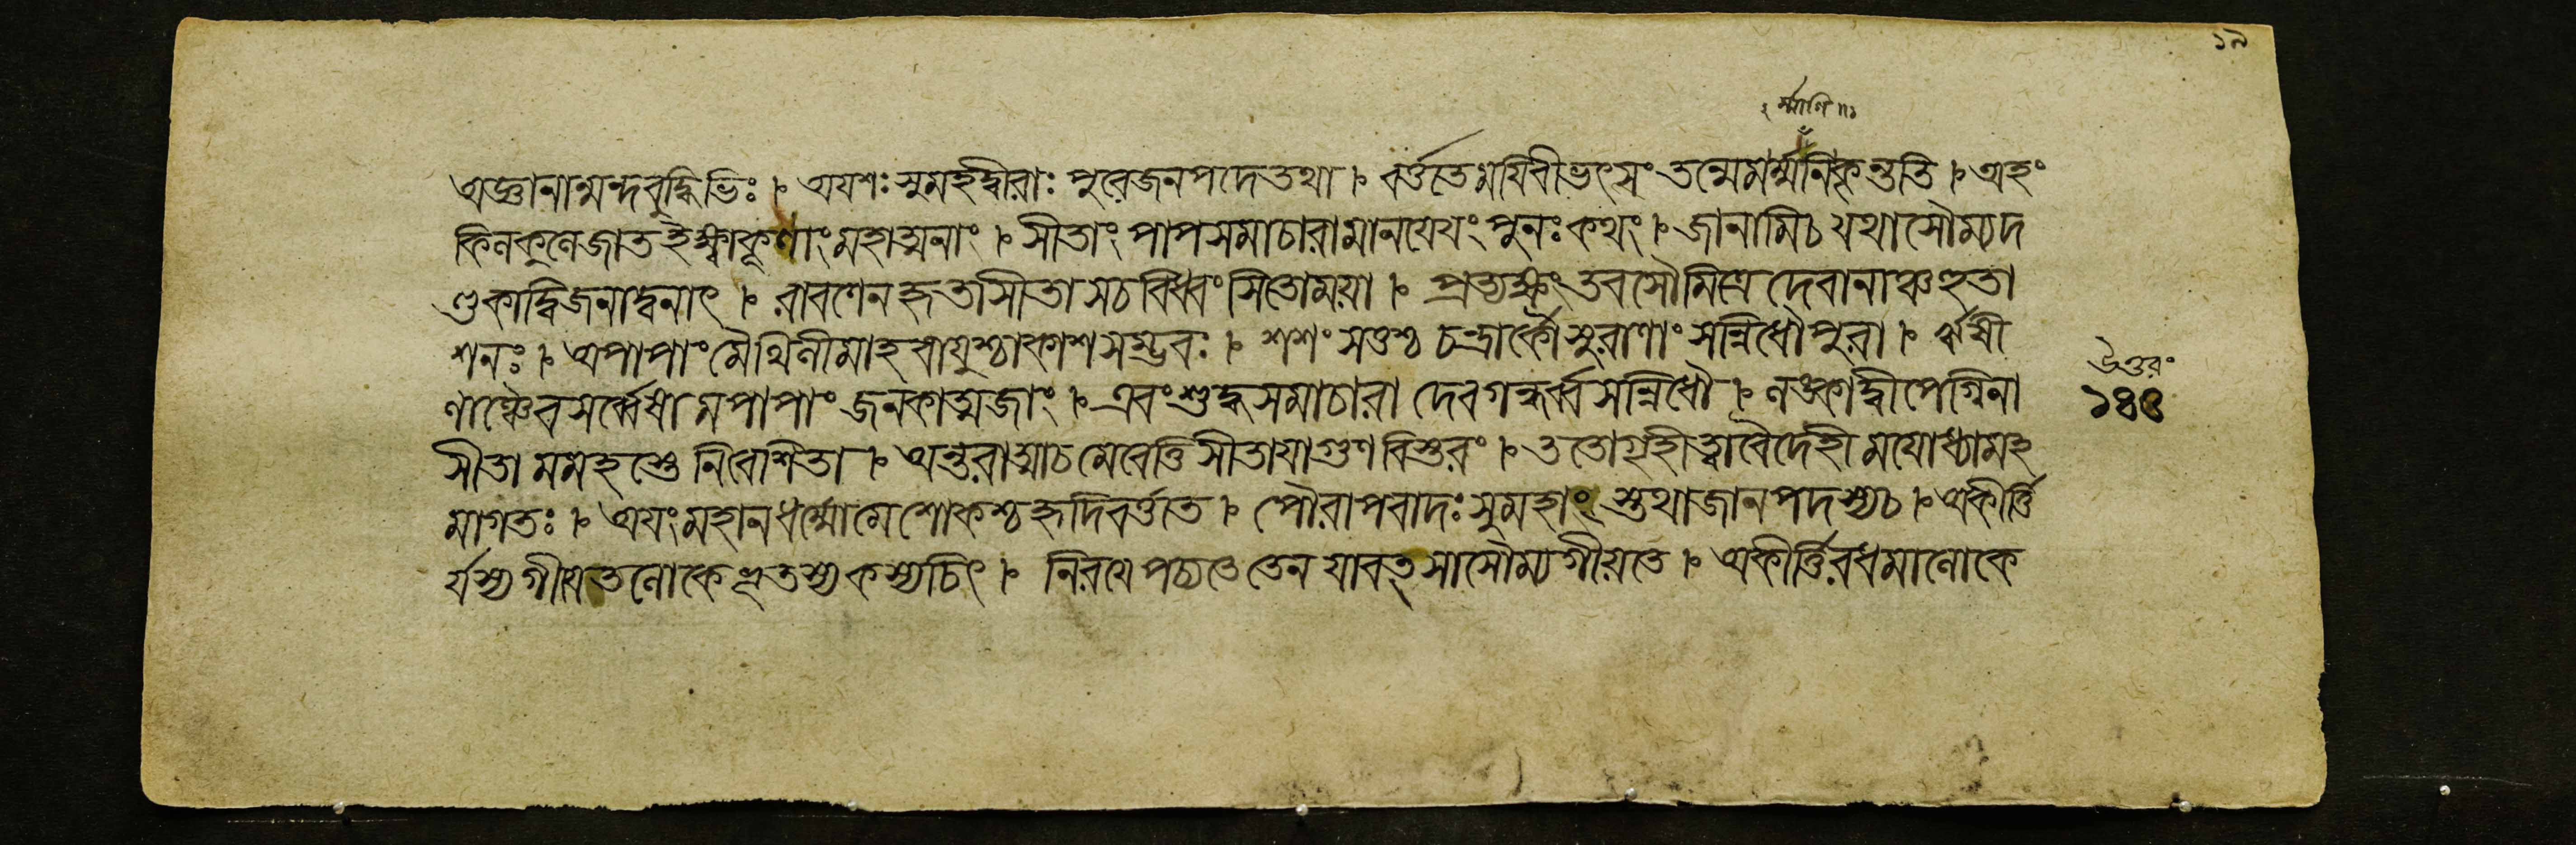 ১৯
র্ম্মাণি ॥১
অজ্ঞানান্মন্দবুদ্ধিভিঃ । অযশঃ সুমহদ্বীরাঃ পুরেজনপদেতথা । বর্ত্ততেময়িবীভৎসং তন্মেমর্ম্মনিকৃন্ততি । অহং
কিলকুলেজাত ইক্ষ্বাকূণাং মহাত্মনাং । সীতাং পাপসমাচারামানযেযং পুনঃ কথং । জানামিচ যথাসৌম্যদ
ণ্ডকাদ্বিজনাদ্বনাৎ । রাবণেন হৃতাসীতা সচ বিধ্বংসিতোময়া । প্রত্যক্ষং তবসৌমিত্রে দেবানাঞ্চহুতা
শনঃ । অপাপাং মৈথিলীমাহ বাযুশ্চাকাশসম্ভবঃ । শশংসতুশ্চ চন্দ্রার্কৌ সুরাণাং সন্নিধৌপুরা । ঋষী
ণাঞ্চৈব সর্ব্বেষামপাপাং জনকাত্মজাং । এবং শুদ্ধসমাচারা দেবগন্ধর্ব্বসন্নিধৌ । লঙ্কাদ্বীপেগ্নিনা
সীতা মমহস্তে নিবেশিতা । অন্তরাত্মাচমেবেত্তি সীতাযাগুণবিস্তরং । ততোগৃহীত্বাবৈদেহীমযোধ্যামহ
মাগতঃ । অযংমহানধর্ম্মোমে শোকশ্চ হৃদিবর্ত্তত । পৌরাপবাদঃ সুমহাং স্তথাজানপদস্যচ । অকীর্ত্তি
র্যস্য গীযতেলোকে ভূতস্য কস্যচিৎ । নিরযে পচ্যতেতেন যাবত্ সাসৌম্যগীয়তে । অকীর্ত্তিরধমালোকে
উত্তরং
১৪৫